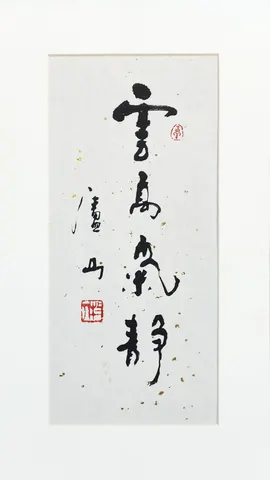 雲高氣靜
廬山